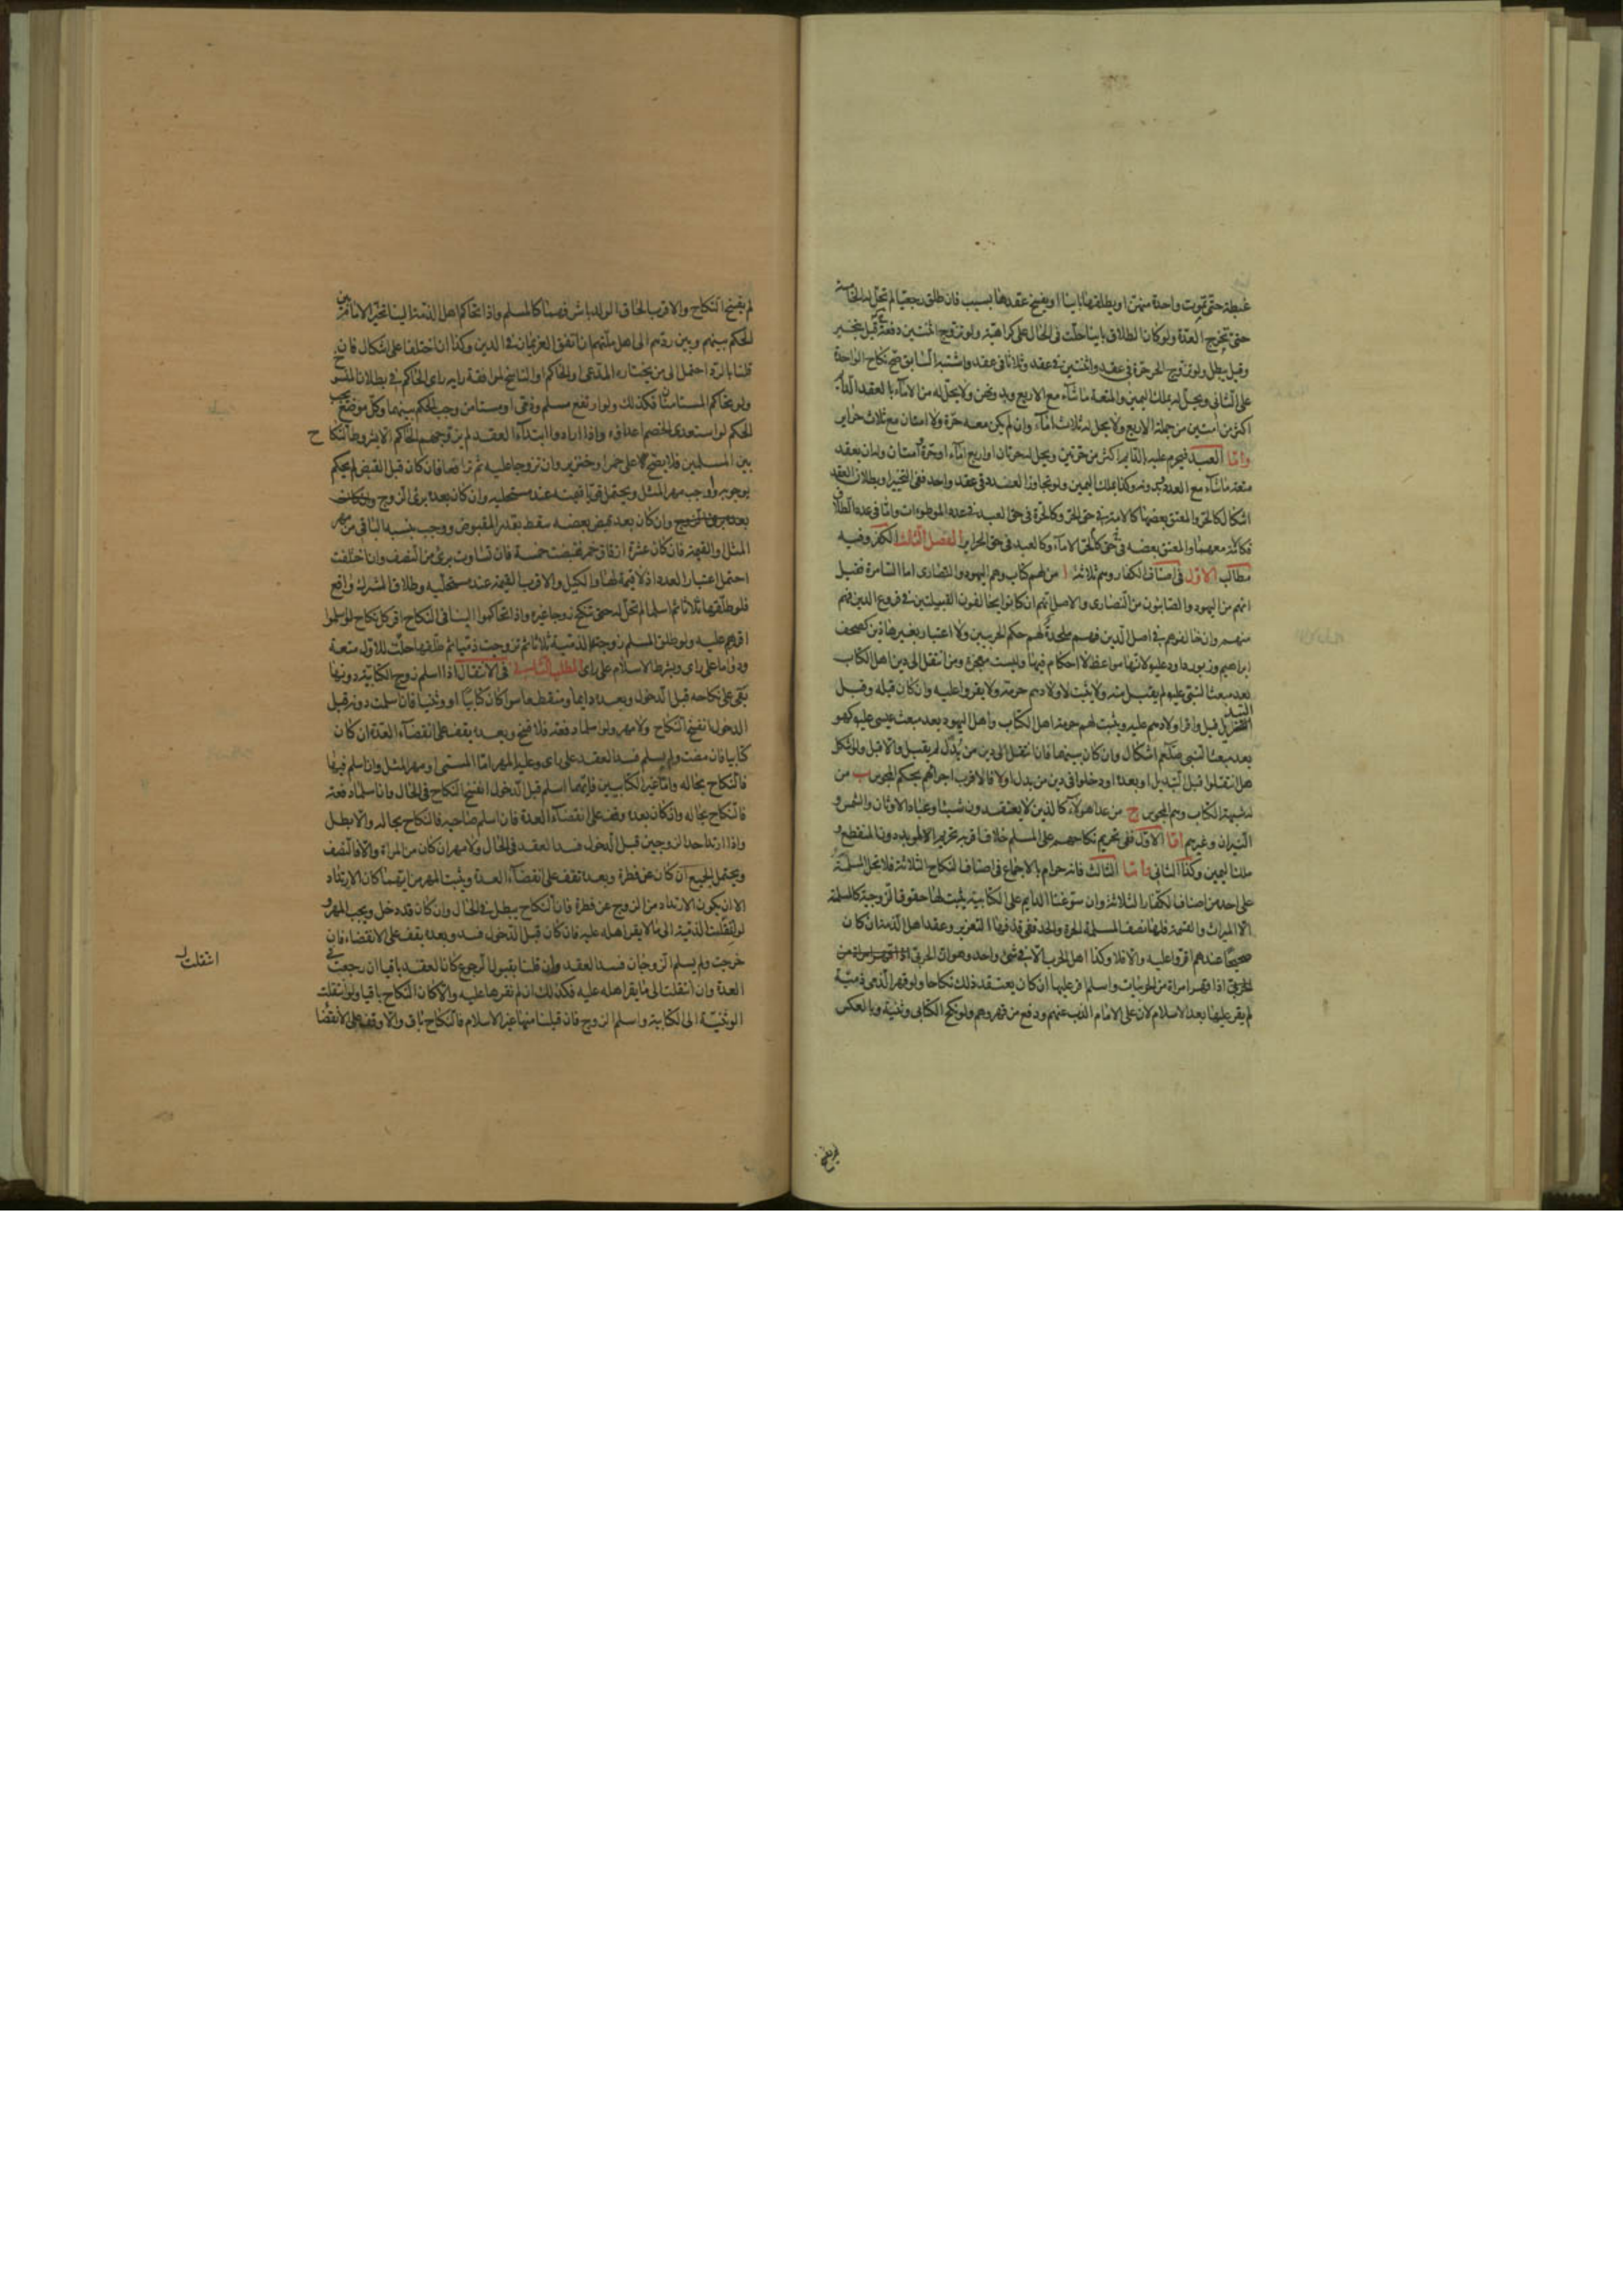 غبطة حتى تموت واحدة منهن او يطلقها باينا او يفسخ عقدها بسبب فان طلق رجعيا لم تحل له الخامسة
حتى تخرج العدة ولو كان الطلاق باينا حلت فى الحال على كراهية ولو تزوج اثنتين دفعة قيل يتخير
وقيل يبطل ولو تزوج الحر حرة فى عقد واثنتين فى عقد وثلاثا فى عقد واشتبه السابق صح نكاح الواحدة
على الثانى ويحل له بملك اليمين والمتعة ما شآء مع الاربع وبدونهن ولا يحل له من الامآء بالعقد الدائم
اكثر من امتين من جملة الاربع ولا يحل له ثلاث امآء وان لم يكن معه حرة ولا امتان مع ثلاث حراير
وامّا العبد فيحرم عليه الدايم اكثر من حرتين ويحل له حرتان او اربع امآء او حرة وامتان وله ان يعقد
متعة ما شآء مع العدد وبدونه وكذا بملك اليمين ولو تجاوز العدد فى عقد واحد ففى التخير او بطلان العقد
اشكال كالحر والمعتق بعضها كالامة فى حق الحر وكالحرة فى حق العبد فى عدد الموطوءات واما فى عدد الطلاق
فكالامة معهما والمعتق بعضه فى حق كالحر الامآء وكالعبد فى حق الحراير الفصل الثالث الكفر وفيه
مطالب الاول فى اصناف الكفار وهم ثلاثة ا من لهم كتاب وهم اليهود والنصارى اما السامرة فقيل
انهم من اليهود والصابئون من النصارى والاصل انهم ان كانوا يخالفون القبيلتين فى فروع الدين فهم
منهم وان خالفوهم فى اصل الدين فهم ملحدة لهم حكم الحربيين ولا اعتبار بغير هاذين كصحف
ابراهيم وزبور داود عليه لانها مواعظ لا احكام فيها وليست معجزة ومن انتقل الى دين اهل الكتاب
بعد مبعث النبى عليه لم يقبل منه ولا يثبت لاولادهم حرمة ولا يقروا عليه وان كان قبله وقبل
التبديل قبل واقر اولادهم عليه ويثبت لهم حرمة اهل الكتاب واهل اليهود بعد مبعث عيسى عليه كهو
بعد مبعث النبى صلعم اشكال وان كان بينهما فان انتقل الى دين من بدل لم يقبل والا قبل ولو اشكل
هل انتقلوا قبل التبديل او بعده او دخلوا فى دين من بدل او لا فالاقرب اجرآهم بحكم المجوس ب من
له شبهة الكتاب وهم المجوس ج من عدا هولآء كالذين لا يعتقدون شيئا وعباد الاوثان والشمس و
النيران وغيرهم امّا الاول ففى تحريم نكاحهم على المسلم خلاف اقربه تحريم المؤبد دون المنقطع و
ملك اليمين وكذا الثانى وامّا الثالث فانه حرام بالاجماع فى اصناف النكاح الثلاثة فلا تحل المسلمة
على احد من اصناف الكفار الثلاثة وان سوغنا الدايم على الكتابية يثبت لها حقوق الزوجية كالمسلمة
الا الميراث والقسمة فلها نصف المسلمة الحرة والحد ففى قذفها التعزير وعقد اهل الذمة ان كان
صحيحا عندهم اقروا عليه والا فلا وكذا اهل الحرب الا فى شئ واحد وهو ان الحربى اذا قهر امراة من
الحربى اذا قهر امراة من الحربيات واسلم اقر عليها ان كان يعتقد ذلك نكاحا ولو قهر الذمى ذمية
لم يقر عليها بعد الاسلام لان على الامام الذب عنهم ودفع من قهرهم ولو نكح الكتابى وثنية وبالعكس
لم يفسخ
لم يفسخ النكاح والاقرب الحاق الولد باشرفهما كالمسلم واذا تحاكم اهل الذمة الينا تخير الامام بين
الحكم بينهم وبين ردهم الى اهل ملتهم ان اتفق الغريمان فى الدين وكذا ان اختلفا على اشكال فان
قلنا بالرد احتمل الى من يختاره المدعى او الحاكم او الناسخ لموافقة رايه راى الحاكم فى بطلان المنسوخ
ولو تحاكم المستامنان فكذلك ولو ارتفع مسلم وذمى او مستامن وجب الحكم بينهما وكل موضع يجب
الحكم لو استعدى الخصم اعداه واذا ارادوا ابتدآء العقد لم يزوجهم الحاكم الا بشروط النكاح
بين المسلمين فلا يصح الا على خمر او خنزير وان تزوجا عليه ثم ترافعا فان كان قبل القبض لم يحكم
بوجوبه واوجب مهر المثل ويحتمل قويا قيمته عند مستحليه وان كان بعده برئ الزوج وان كان
بعد برئ الزوج وان كان بعد قبض بعضه سقط بقدر المقبوض ووجب بنسبة الباقى من مهر
المثل او القيمة فان كان عشرة ازقاق خمر فقبضت خمسة فان تساوت برئ من النصف وان اختلفت
احتمل اعتبار العدد اذ لا قيمة لها والكيل والاقرب القيمة عند مستحليه وطلاق المشرك واقع
فلو طلقها ثلاثا ثم اسلما لم تحل له حتى تنكح زوجا غيره واذا تحاكموا الينا فى النكاح اقر كل نكاح لو اسلموا
اقرهم عليه ولو طلق المسلم زوجته الذمية ثلاثا ثم تزوجت ذميا ثم طلقها حلت للاول متعة
ودواما على راى وبشرط الاسلام على راى المطلب الثانى فى الانتقال اذا اسلم زوج الكتابية دونها
بقى على نكاحه قبل الدخول وبعده دايما ومنقطعا سوا كان كتابيا او وثنيا فان اسلمت دونه قبل
الدخول انفسخ النكاح ولا مهر ولو اسلما دفعة فلا فسخ وبعده يقف على انقضآء العدة ان كان
كتابيا فان مضت ولم يسلم فسد العقد على راى وعليه المهر امّا المسمى او مهر المثل وان اسلم فيها
فالنكاح بحاله وامّا غير الكتابيين فايهما اسلم قبل الدخول انفسخ النكاح فى الحال وان اسلما دفعة
فالنكاح بحاله وان كان بعده وقف على انقضآء العدة فان اسلم صاحبه فالنكاح بحاله والا بطل
واذا ارتد احد الزوجين قبل الدخول فسد العقد فى الحال ولا مهر ان كان من المراة والا فالنصف
ويحتمل الجميع ان كان عن فطرة وبعده تقف على انقضآء العدة ويثبت المهر من ايهما كان الارتداد
الا ان يكون الارتداد من الزوج عن فطرة فان النكاح يبطل فى الحال وان كان قد دخل ويجب المهر و
لو انتقلت الذمية الى ما لا يقر اهله عليه فان كان قبل الدخول فسد وبعده يقف على الانقضاء فان
خرجت ولم يسلم الزوجان فسد العقد وان قلنا بقبول الرجوع كان العقد باقيا ان رجعت فى
العدة وان انتقلت الى ما يقر اهله عليه فكذلك ان لم نقرها عليه والا كان النكاح باقيا ولو انتقلت
الوثنية الى الكتابية واسلم الزوج فان قبلنا منها غير الاسلام فالنكاح باق والا وقف على الانقضا
انتقلت